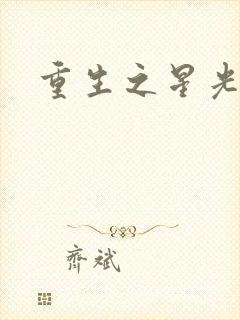 重生之星光
齊斌